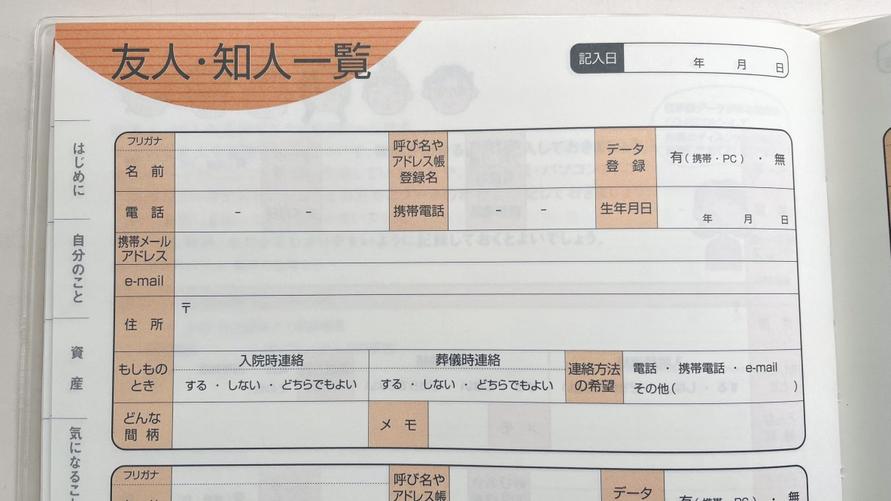 友人・知人一覧
記入日 年 月 日
はじめに
自分のこと
資産
気になること
フリガナ
名前
呼び名や
アドレス帳
登録名
データ
登録
有(携帯・PC)・無
電話 - -
携帯電話 - -
生年月日 年 月 日
携帯メール
アドレス
e-mail
住所 〒
もしもの
とき
入院時連絡
する・しない・どちらでもよい
葬儀時連絡
する・しない・どちらでもよい
連絡方法
の希望
電話・携帯電話・e-mail
その他( )
どんな
間柄
メモ
フリガナ
呼び名や
アドレス帳
データ
有(携帯・PC)・無